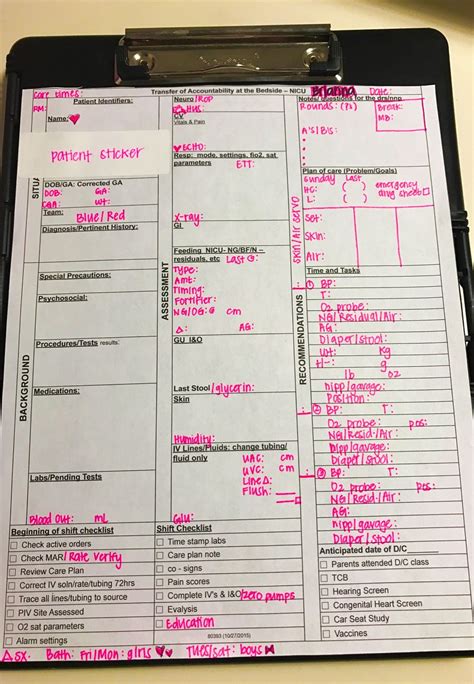 care times:
Transfer of Accountability at the Bedside – NICU Brianna Date:
RM:
Patient Identifiers:
Name:
patient sticker
SITU
DOB/GA: Corrected GA
DOB: GA:
CGA: WT:
Team: Blue/Red
Diagnosis/Pertinent History:
BACKGROUND
Special Precautions:
Psychosocial:
Procedures/Tests results:
Medications:
Labs/Pending Tests
Blood Out: mL
ASSESSMENT
Neuro/ROP
HUS:
CV
Vitals & Pain
ECHO:
Resp: mode, settings, fio2, sat
parameters ETT:
X-ray:
GI
Feeding NICU- NG/BF/N –
residuals, etc Last G:
Type:
Amt:
Timing:
Fortifier:
NG/OG: @ cm
Δ: AG:
GU I&O
Last Stool /glycerin:
Skin
Humidity:
IV Lines/Fluids: change tubing/
fluid only
UAC: cm
UVC: cm
Line Δ:
Flush:
Glu:
Notes/questions for the drs/nnp
Rounds: (Px) Break:
MB:
A'S/B'S:
Plan of care (Problem/Goals)
Sunday Last
HC: ( )
L: ( )
emergency
drug sheet
skin/Air servo
Set:
Skin:
Air:
RECOMMENDATIONS
Time and Tasks
: ① BP: T:
O2 probe:
NG/Residual/Air:
AG:
Diaper/stool:
wt: kg
+/-: g
lb oz
nipp/gavage:
Position:
: ② BP: T:
O2 probe: pos:
NG/Resid-/Air:
nipp/gavage:
Diaper/stool:
: ③ BP: T:
O2 probe: pos:
NG/Resid-/Air:
AG:
nipp/gavage:
Diaper/stool:
Beginning of shift checklist
Check active orders
Check MAR/Rate Verify
Review Care Plan
Correct IV soln/rate/tubing 72hrs
Trace all lines/tubing to source
PIV Site Assessed
O2 sat parameters
Alarm settings
Shift Checklist
Time stamp labs
Care plan note
co - signs
Pain scores
Complete IV's & I&O/zero pumps
Evalysis
Education
80393 (10/27/2015)
Anticipated date of D/C
Parents attended D/C class
TCB
Hearing Screen
Congenital Heart Screen
Car Seat Study
Vaccines
Δ SX: Bath: Fri/Mon: girls Tues/sat: boys